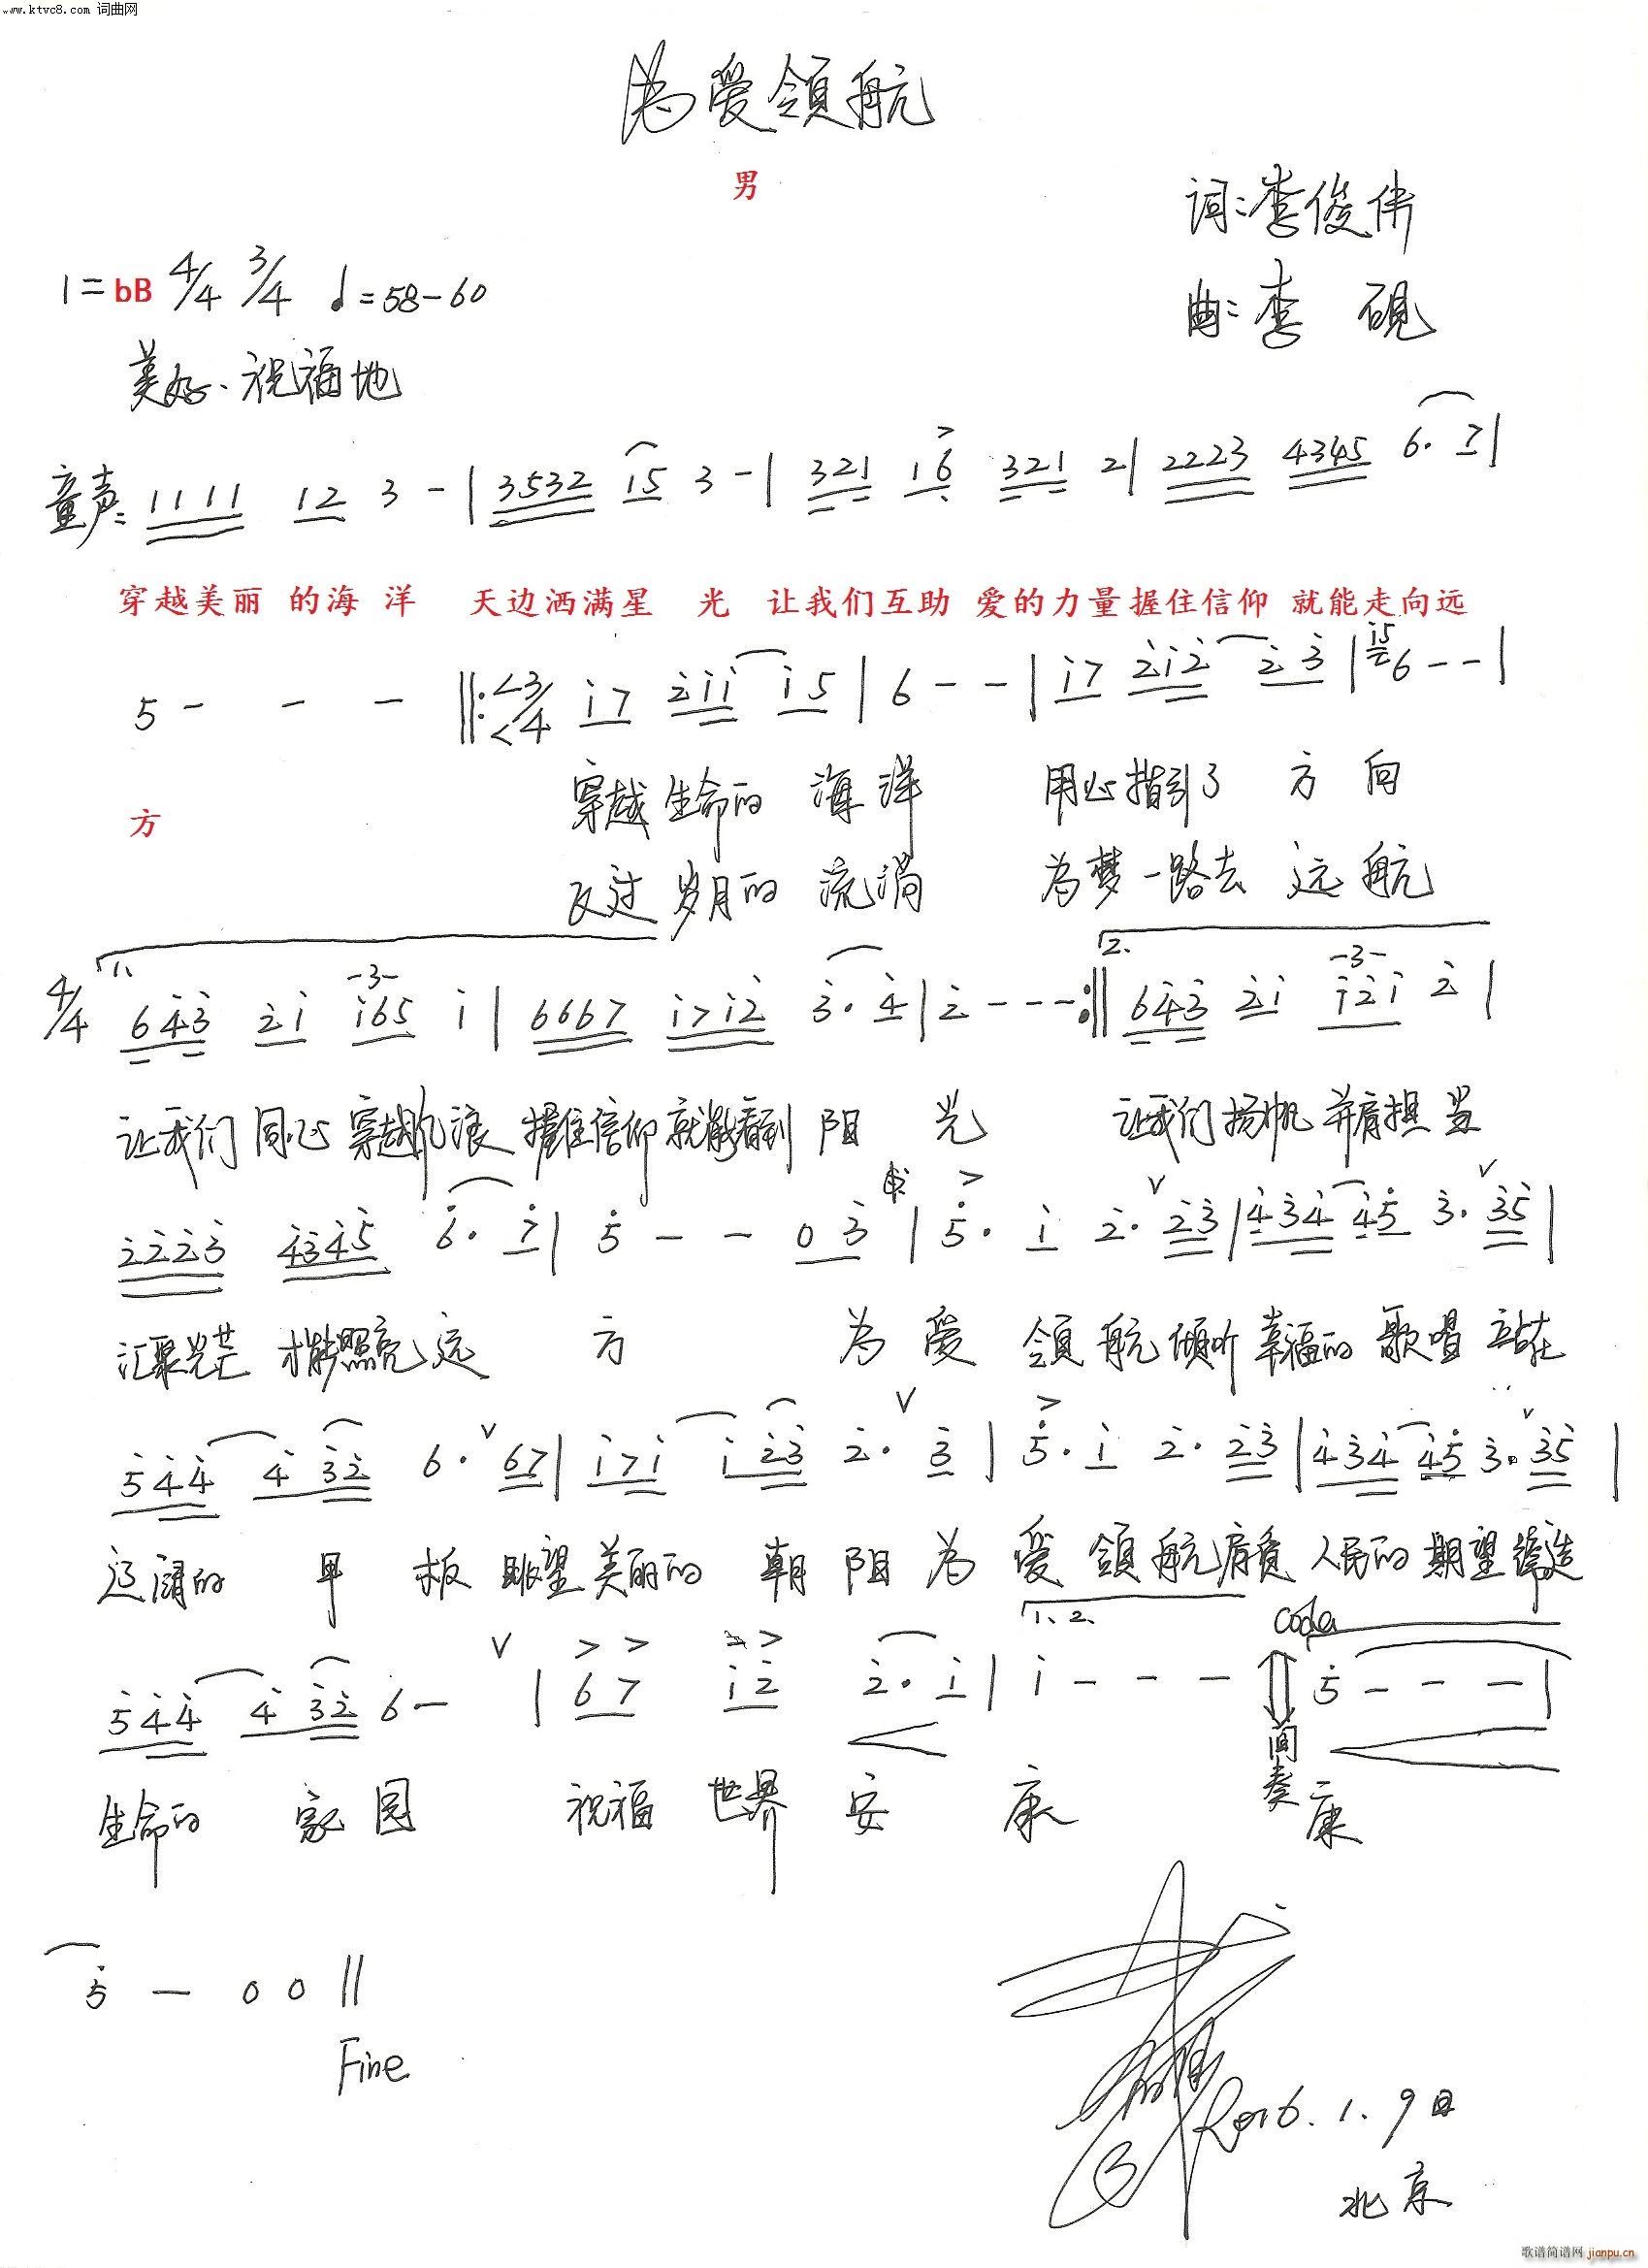 www.ktvc8.com 词曲网
为爱领航
男
词:李俊伟
1=bB 4/4 3/4 ♩=58-60
曲:李 砚
美好.祝福地
童声: 1111 12 3 - | 3532 i5 3 - | 321 16 321 2 | 2223 4345 6. 7 |
穿越美丽 的海 洋 天边洒满星 光 让我们互助 爱的力量握住信仰 就能走向远
5 - - - ‖: 3/4 i7 2ii i5 | 6 - - | i7 2i2 2 3 | i5 6 - - |
穿越生命的 海 洋 用心指引了 方 向
方
度过 岁月的 流淌 为梦一路去 远 航
1. 2.
4/4 643 2i i65 i | 6667 i7i2 3. 4 | 2 - - - :‖ 643 2i i2i 2 |
让我们 同心 穿越风浪 握住信仰就能看到 阳 光 让我们 扬帆 并肩担当
2223 4345 6. 7 | 5 - - 0 3 | 5. i 2. 23 | 434 45 3. 35 |
汇聚光芒 才能照亮远 方 为 爱 领航倾听 幸福的 歌唱 站在
544 4 32 6. 67 | i7i i 23 2. 3 | 5. i 2. 23 | 434 45 3. 35 |
辽阔的 甲 板 眺望美丽的 朝 阳 为 爱 领航肩负 人民的 期望 缔造
1. 2. Coda
544 4 32 6 - | 67 i2 2. i | i - - - 5 - - - |
生命的 家 园 祝福 世界 安 康 间奏 康
5 - 0 0 ‖
Fine
2016.1.9日
北京
歌谱简谱网 jianpu.cn